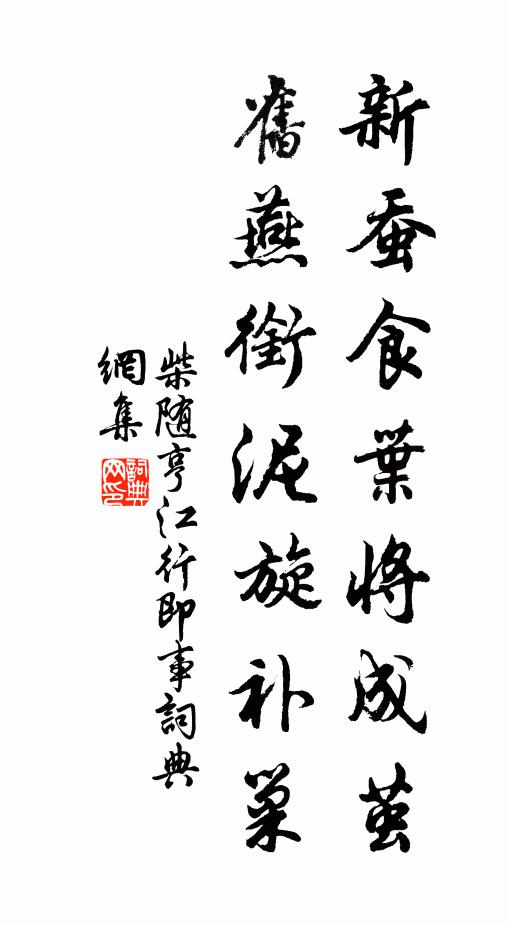 新蚕食葉將成茧
舊燕銜泥旋补巢
柴随亨江行即事詞典
網集
詞典网印